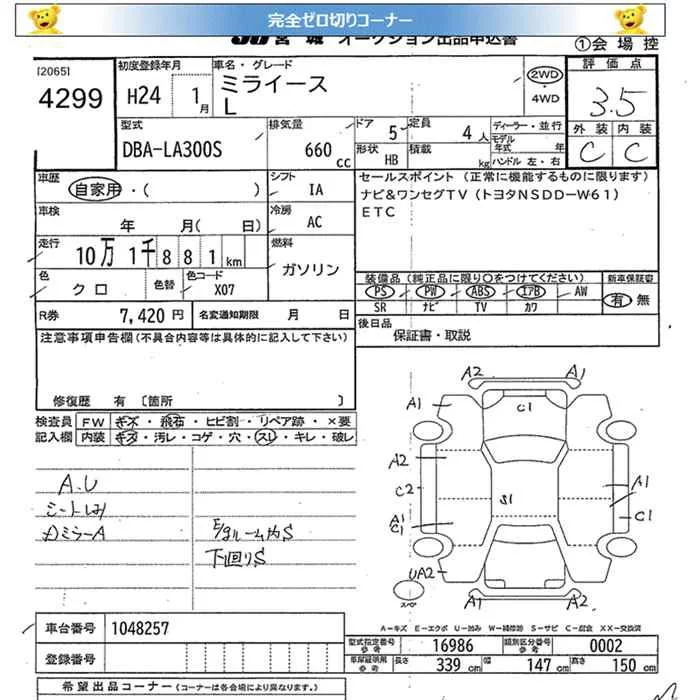 完全ゼロ切りコーナー
JU 宮 城 オークション出品申込書
①会 場 控
[2065]
4299
初度登録年月
H24 1月
車名・グレード
ミライース
L
2WD
・
4WD
評 価 点
3.5
外 装 内 装
C C
型式
DBA-LA300S
排気量
660 cc
ドア 5
定員 4 人
形状 HB
積載 kg
ディーラー・並行
モデル年式 年
ハンドル 左・右
車歴
自家用・( )
シフト
IA
セールスポイント (正常に機能するものに限ります)
ナビ&ワンセグTV(トヨタNSDD-W61)
ETC
車検
年 月( 日)
冷房
AC
走行
10万 1千 8 8 1 km
燃料
ガソリン
色
クロ
色替
色コード
X07
装備品(純正品に限り○をつけてください)
新車保証書
PS PW ABS エアB AW
有・無
SR ナビ TV カワ
R券 7,420 円
名変通知期限 月 日
後日品
保証書・取説
注意事項申告欄(不具合内容等は具体的に記入して下さい)
修復歴 有 〔箇所 〕
検査員 FW キズ・飛石・ヒビ割・リペア跡・×要
記入欄 内装 キズ・汚レ・コゲ・穴・スリ・キレ・破レ
A.U
シートしみ
E/gルーム内S
下回りS
A2 A1
A1
C1
A2
C2
S1
A1
A1
C1
C1
UA2
A1 A2
スペア
A-キズ E-エクボ U-凹み W-補修跡 S-サビ C-腐食 XX-交換済
車台番号 1048257
型式指定番号 参考 16986
類別区分番号 参考 0002
登録番号
車庫証明用 参考 長さ 339 cm 幅 147 cm 高さ 150 cm
希望出品コーナー (コーナーは各会場により異なります。)